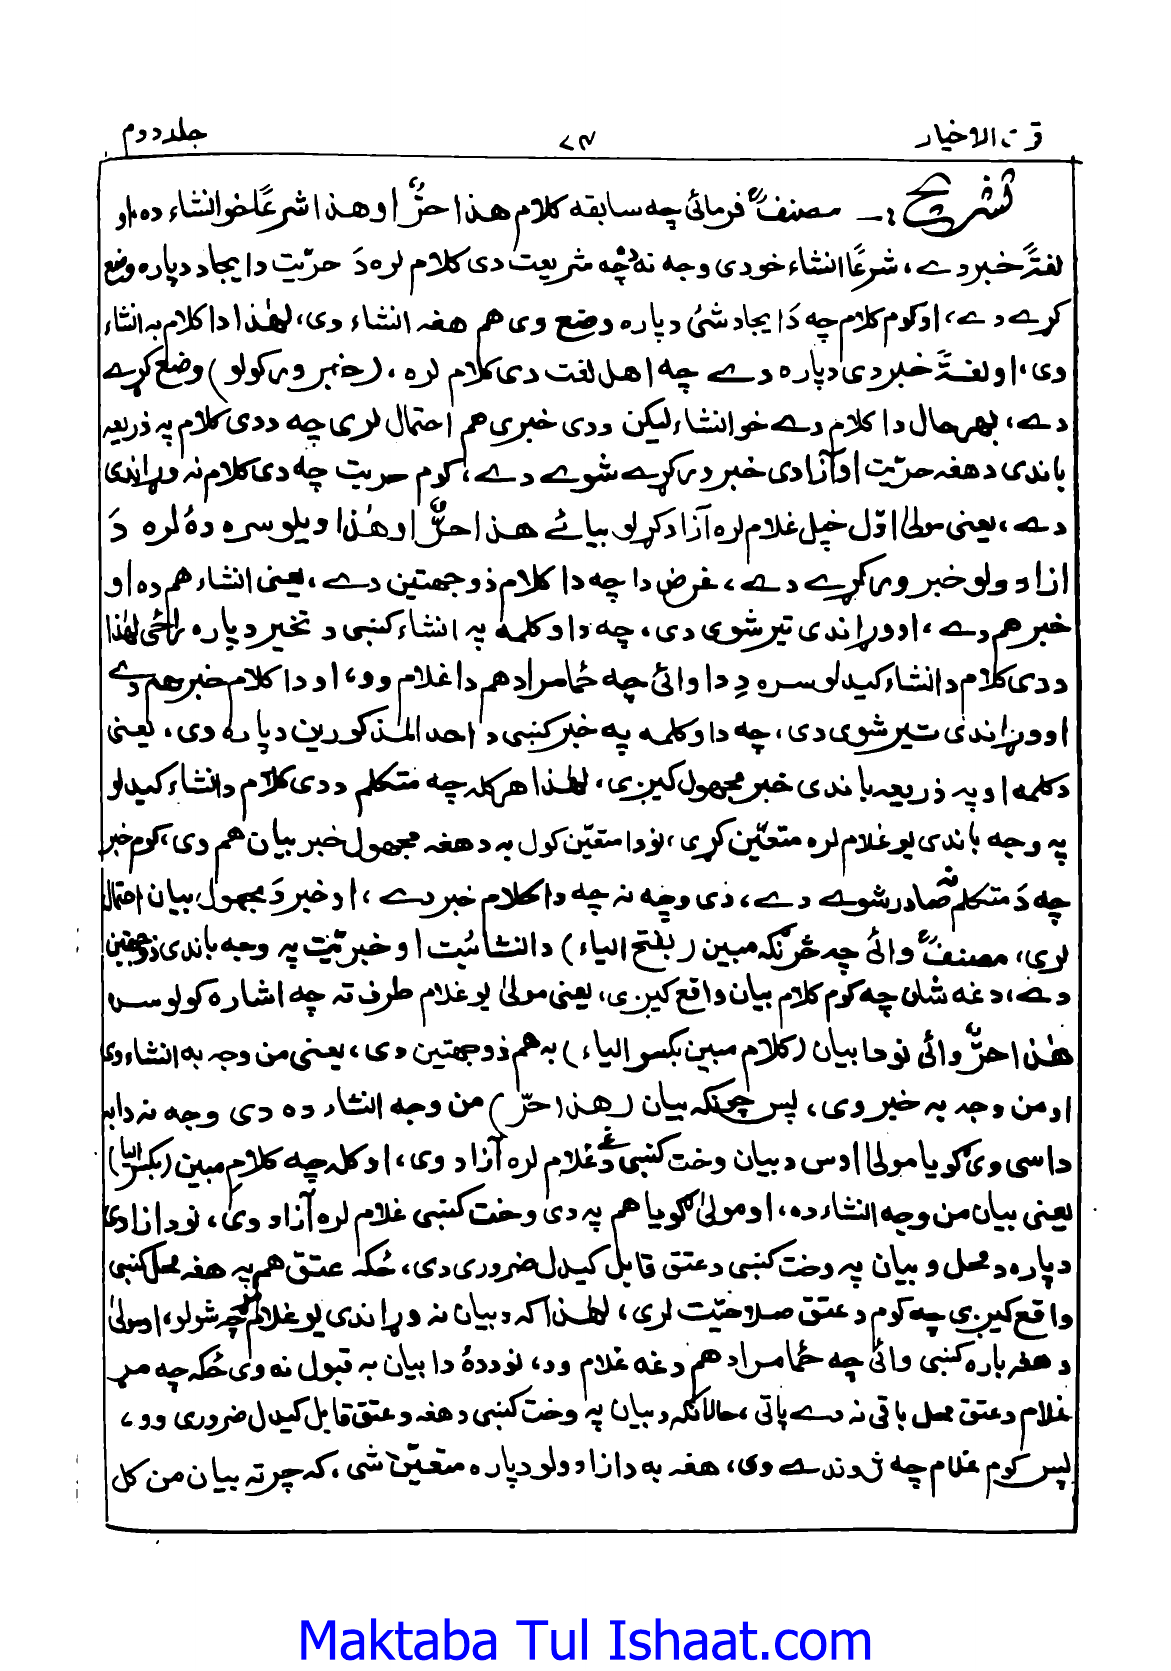 قرۃ الاخیار ۷۴ جلد دوم
تشریح :۔ مصنفؒ فرمائی چه سابقه کلام هذا حرٌّ او هذا شرعًا خو انشاء ده او
لغتۃً خبر دے، شرعًا انشاء خو دی وجه نه ده چه شریعت دی کلام لره دَ حرّیت دا یجاد دپاره وضع
کړے دے، او کوم کلام چه دَ ایجاد شئ دپاره وضع وی هم هغه انشاء دی، لهٰذا دا کلام به انشاء
دی، او لغتۃً خبر دی دپاره دے چه اهل لغت دی کلام لره، (خبر ورکولو) وضع کړے
دے، بهر حال دا کلام دے خو انشاء لیکن ددی خبری هم احتمال لری چه ددی کلام په ذریعه
باندی د هغه حرّیت او آزادی خبر ورکړے شوے دے، کوم حریت چه دی کلام نه وړاندی
دے، یعنی مولیٰ اوّل خپل غلام لره آزاد کړلو بیائے هذا حرٌّ او هٰذا ویلو سره دهٔ لره دَ
ازادولو خبر ورکړے دے، غرض دا چه دا کلام ذوجهتین دے، یعنی انشاء هم ده او
خبر هم دے، او وړاندی تیر شوی دی، چه دا و کلمه په انشاء کښی د تخیر دپاره راځی لهٰذا
ددی کلام د انشاء کیدلو سره دِ دا وائی چه ځما مراد هم دا غلام وو، او دا کلام خبر هم دے
او وړاندی تیر شوی دی، چه دا و کلمه په خبر کښی د احد المذکورین دپاره دی، یعنی
د کلمه او په ذریعه باندی خبر مجهول کیږی، لهٰذا هر کله چه متکلم ددی کلام د انشاء کیدلو
په وجه باندی یو غلام لره متعیّن کړی، نو دا متعیّن کول به د هغه مجهول خبر بیان هم دی، کوم خبر
چه دَ متکلم نه صادر شوے دے، دی وجه نه چه دا کلام خبر دے، او خبر دَ مجهول بیان احتمال
لری، مصنفؒ وائی چه څرنگه مبین (بفتح الیاء) دانشائیت او خبریّت په وجه باندی ذوجهتین
دے، دغه شان چه کوم کلام بیان واقع کیږی، یعنی مولیٰ یو غلام طرف ته چه اشاره کولو سره
هٰذا حرٌّ وائی نو دا بیان (کلام مبین بکسر الیاء) به هم ذوجهتین دی، یعنی من وجه به انشاء وی
او من وجه به خبر وی، پس چونکه بیان (هذا حرّ) من وجه انشاء ده دی وجه نه دا به
داسی وی گویا مولیٰ اوس د بیان وخت کښی دغه غلام لره آزادوی، او کله چه کلام مبین (بکسر الیاء)
یعنی بیان من وجه انشاء ده، او مولیٰ گویا هم په دی وخت کښی غلام لره آزادوی، نو دازادی
دپاره د محل و بیان په وخت کښی د عتق قابل کیدل ضروری دی، ځکه عتق هم په هغه محل کښی
واقع کیږی چه کوم د عتق صلاحیّت لری، لهٰذا که د بیان نه وړاندی یو غلام مړ شولو، او مولیٰ
د هغه باره کښی وائی چه ځما مراد هم دغه غلام وو، نو ددهٔ دا بیان به قبول نه وی ځکه چه مړ
غلام د عتق محل باقی نه دے پاتی، حالانکه د بیان په وخت کښی د هغه د عتق قابل کیدل ضروری وو،
پس کوم غلام چه ژوندے وی، هغه به د ازادولو دپاره متعیّن شی، که چرته بیان من کل
Maktaba Tul Ishaat.com